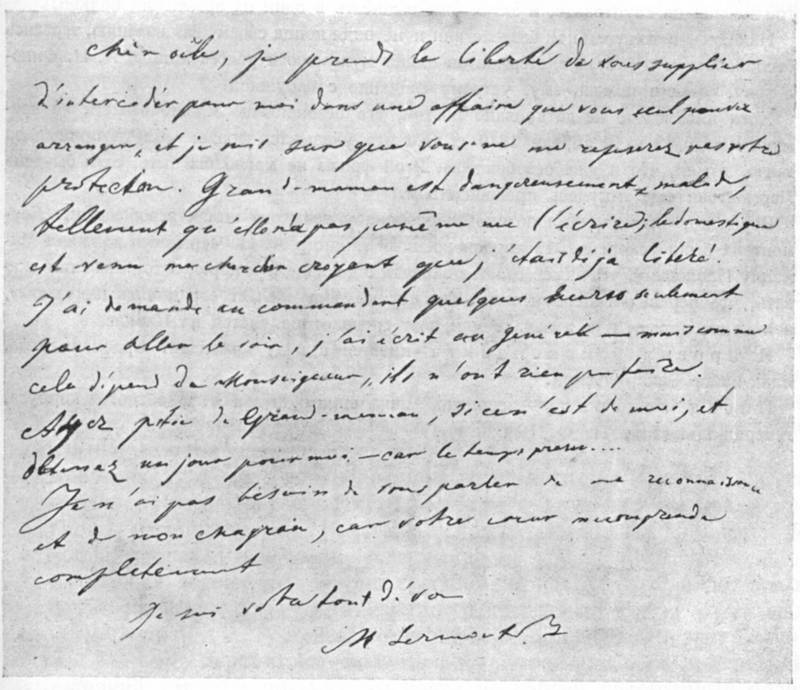 Chèr oèle, je prends la liberté de vous supplier
d'intercéder pour moi dans une affaire que vous seul pouvez
arranger, et je suis sur que vous ne me refuserez pas votre
protection. Grand-maman est dangereusement malade,
tellement qu'elle n'a pas même me l'écrire; le domestique
est venu me chercher croyant que j'étais déja libéré.
J'ai demandé au commandant quelques heures seulement
pour aller la voir, j'ai écrit au général — mais comme
cela dépend de Monseigneur, ils n'ont rien pu faire.
Ayez pitié de Grand-maman, si ce n'est de moi, et
obtenez un jour pour moi — car le temps presse....
Je n'ai pas besoin de vous parler de ma reconnaissance
et de mon chagrin, car votre cœur me comprendra
completement
Je suis votre tout dévoué
M Lermontoff